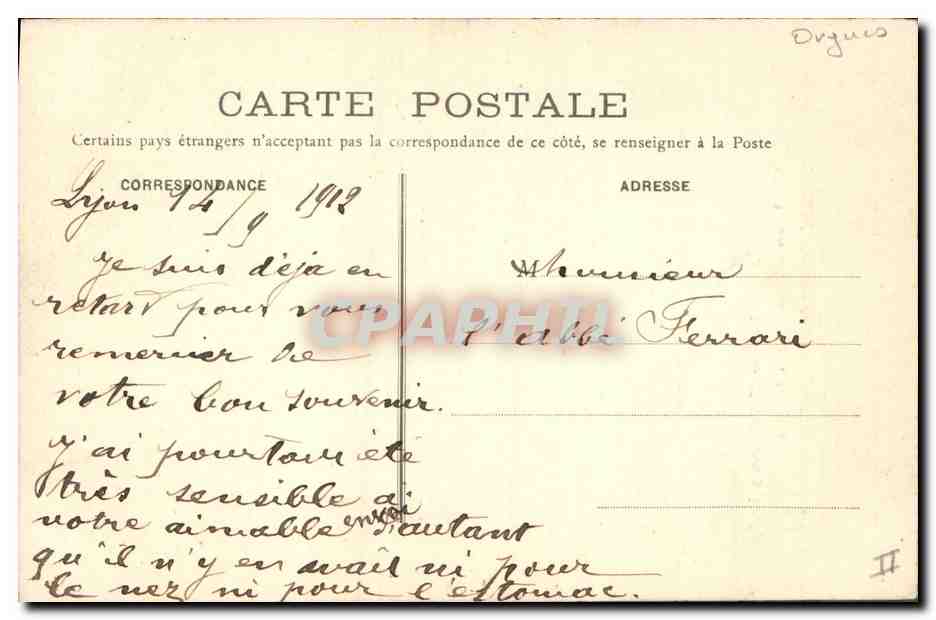 Orgues
CARTE POSTALE
Certains pays étrangers n'acceptant pas la correspondance de ce côté, se renseigner à la Poste
CORRESPONDANCE
Lyon 14/9 1912
Je suis déja en
retard pour vous
remercier de
votre bon souvenir.
J'ai pourtant été
très sensible à
votre aimable envoi d'autant
qu'il n'y en avait ni pour
le nez ni pour l'estomac.
ADRESSE
Monsieur
l'abbé Ferrari
CPAPHIL
II